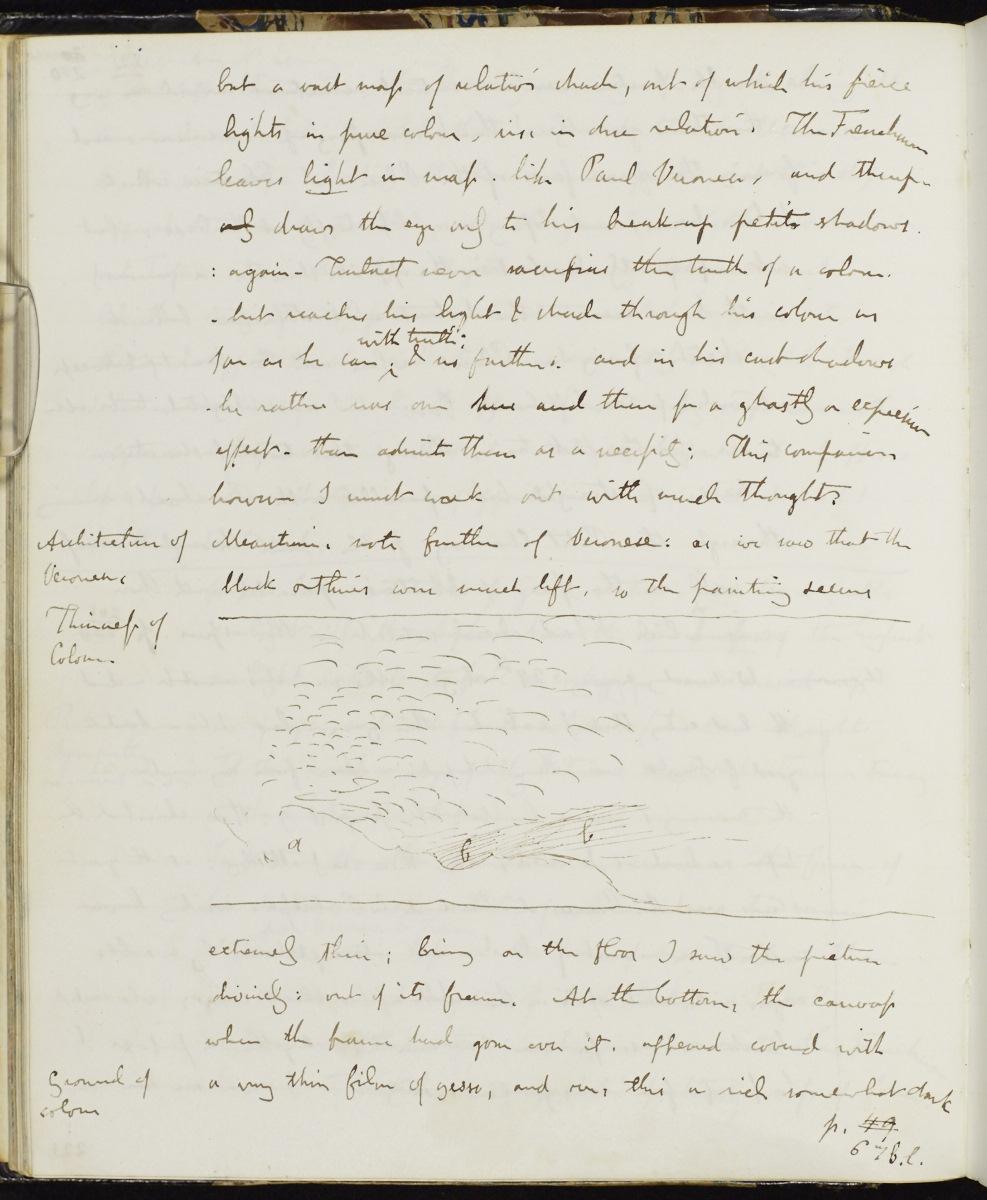 but a vast mass of relative shade, out of which his fierce
lights in pure colour, rise in due relation. The Frenchman
leaves light in mass. like Paul Veronese, and therefore
only draws the eye only to his break-up petits shadows.
: again - Tintoret never sacrifices the truth of a colour.
- but reaches his light & shade through his colour as
with truth:
far as he can; & no further. and in his cast shadows
- he rather uses one here and there for a ghastly or expressive
effect - than admits them as a necessity: This comparison
however I must work out with much thought:
Architecture of
Veronese
Meantime, note further of Veronese: as we saw that the
black outlines were much left, so the painting seems
Thinness of
Colour.
a
b
b
extremely thin; being on the floor I saw the picture
divinely: out of its frame. At the bottom, the canvass
where the frame had gone over it. appeared covered with
Ground of
colour
a very thin film of gesso, and over this a rich somewhat dark
p. 49
67 b.l.